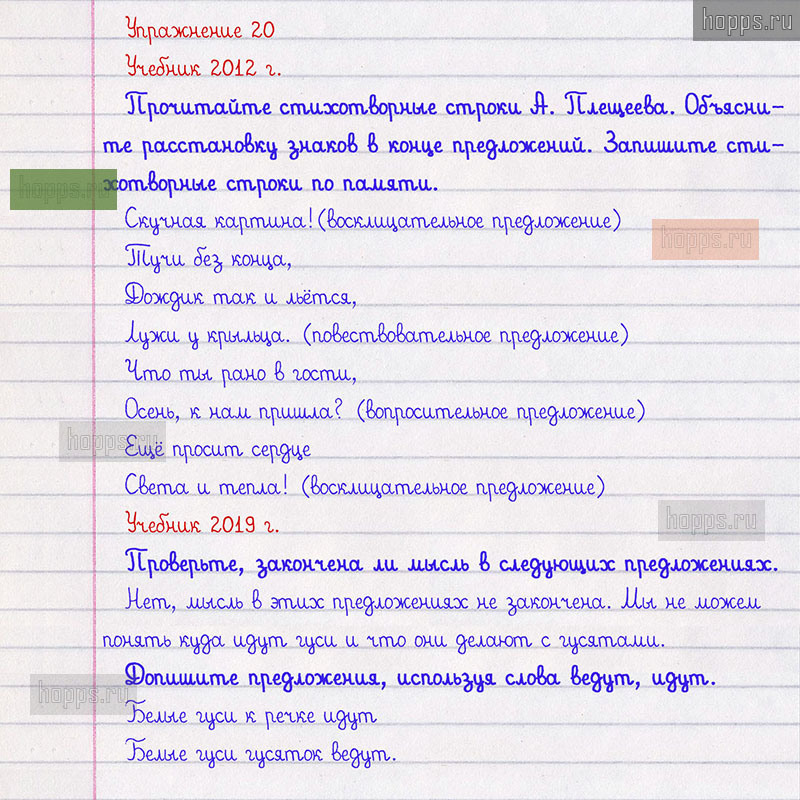 hopps.ru
Упражнение 20
Учебник 2012 г.
Прочитайте стихотворные строки А. Плещеева. Объясни-
те расстановку знаков в конце предложений. Запишите сти-
hopps.ru
хотворные строки по памяти.
Скучная картина!(восклицательное предложение)
hopps.ru
Тучи без конца,
Дождик так и льётся,
Лужи у крыльца. (повествовательное предложение)
Что ты рано в гости,
Осень, к нам пришла? (вопросительное предложение)
hopps.ru
Ещё просит сердце
Света и тепла! (восклицательное предложение)
hopps.ru
Учебник 2019 г.
Проверьте, закончена ли мысль в следующих предложениях.
Нет, мысль в этих предложениях не закончена. Мы не можем
понять куда идут гуси и что они делают с гусятами.
Допишите предложения, используя слова ведут, идут.
hopps.ru
Белые гуси к речке идут
Белые гуси гусяток ведут.